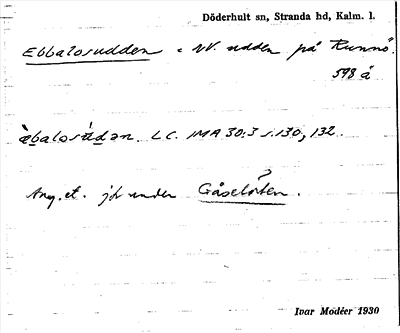 Döderhult sn, Stranda hd, Kalm. l.
Ebbalosudden = NV. udden på Runnö.
598 å
æbalosudən. LC. IMA 30:3 s. 130, 132.
Ang. et. jfr under Gåselöten.
Ivar Modéer 1930